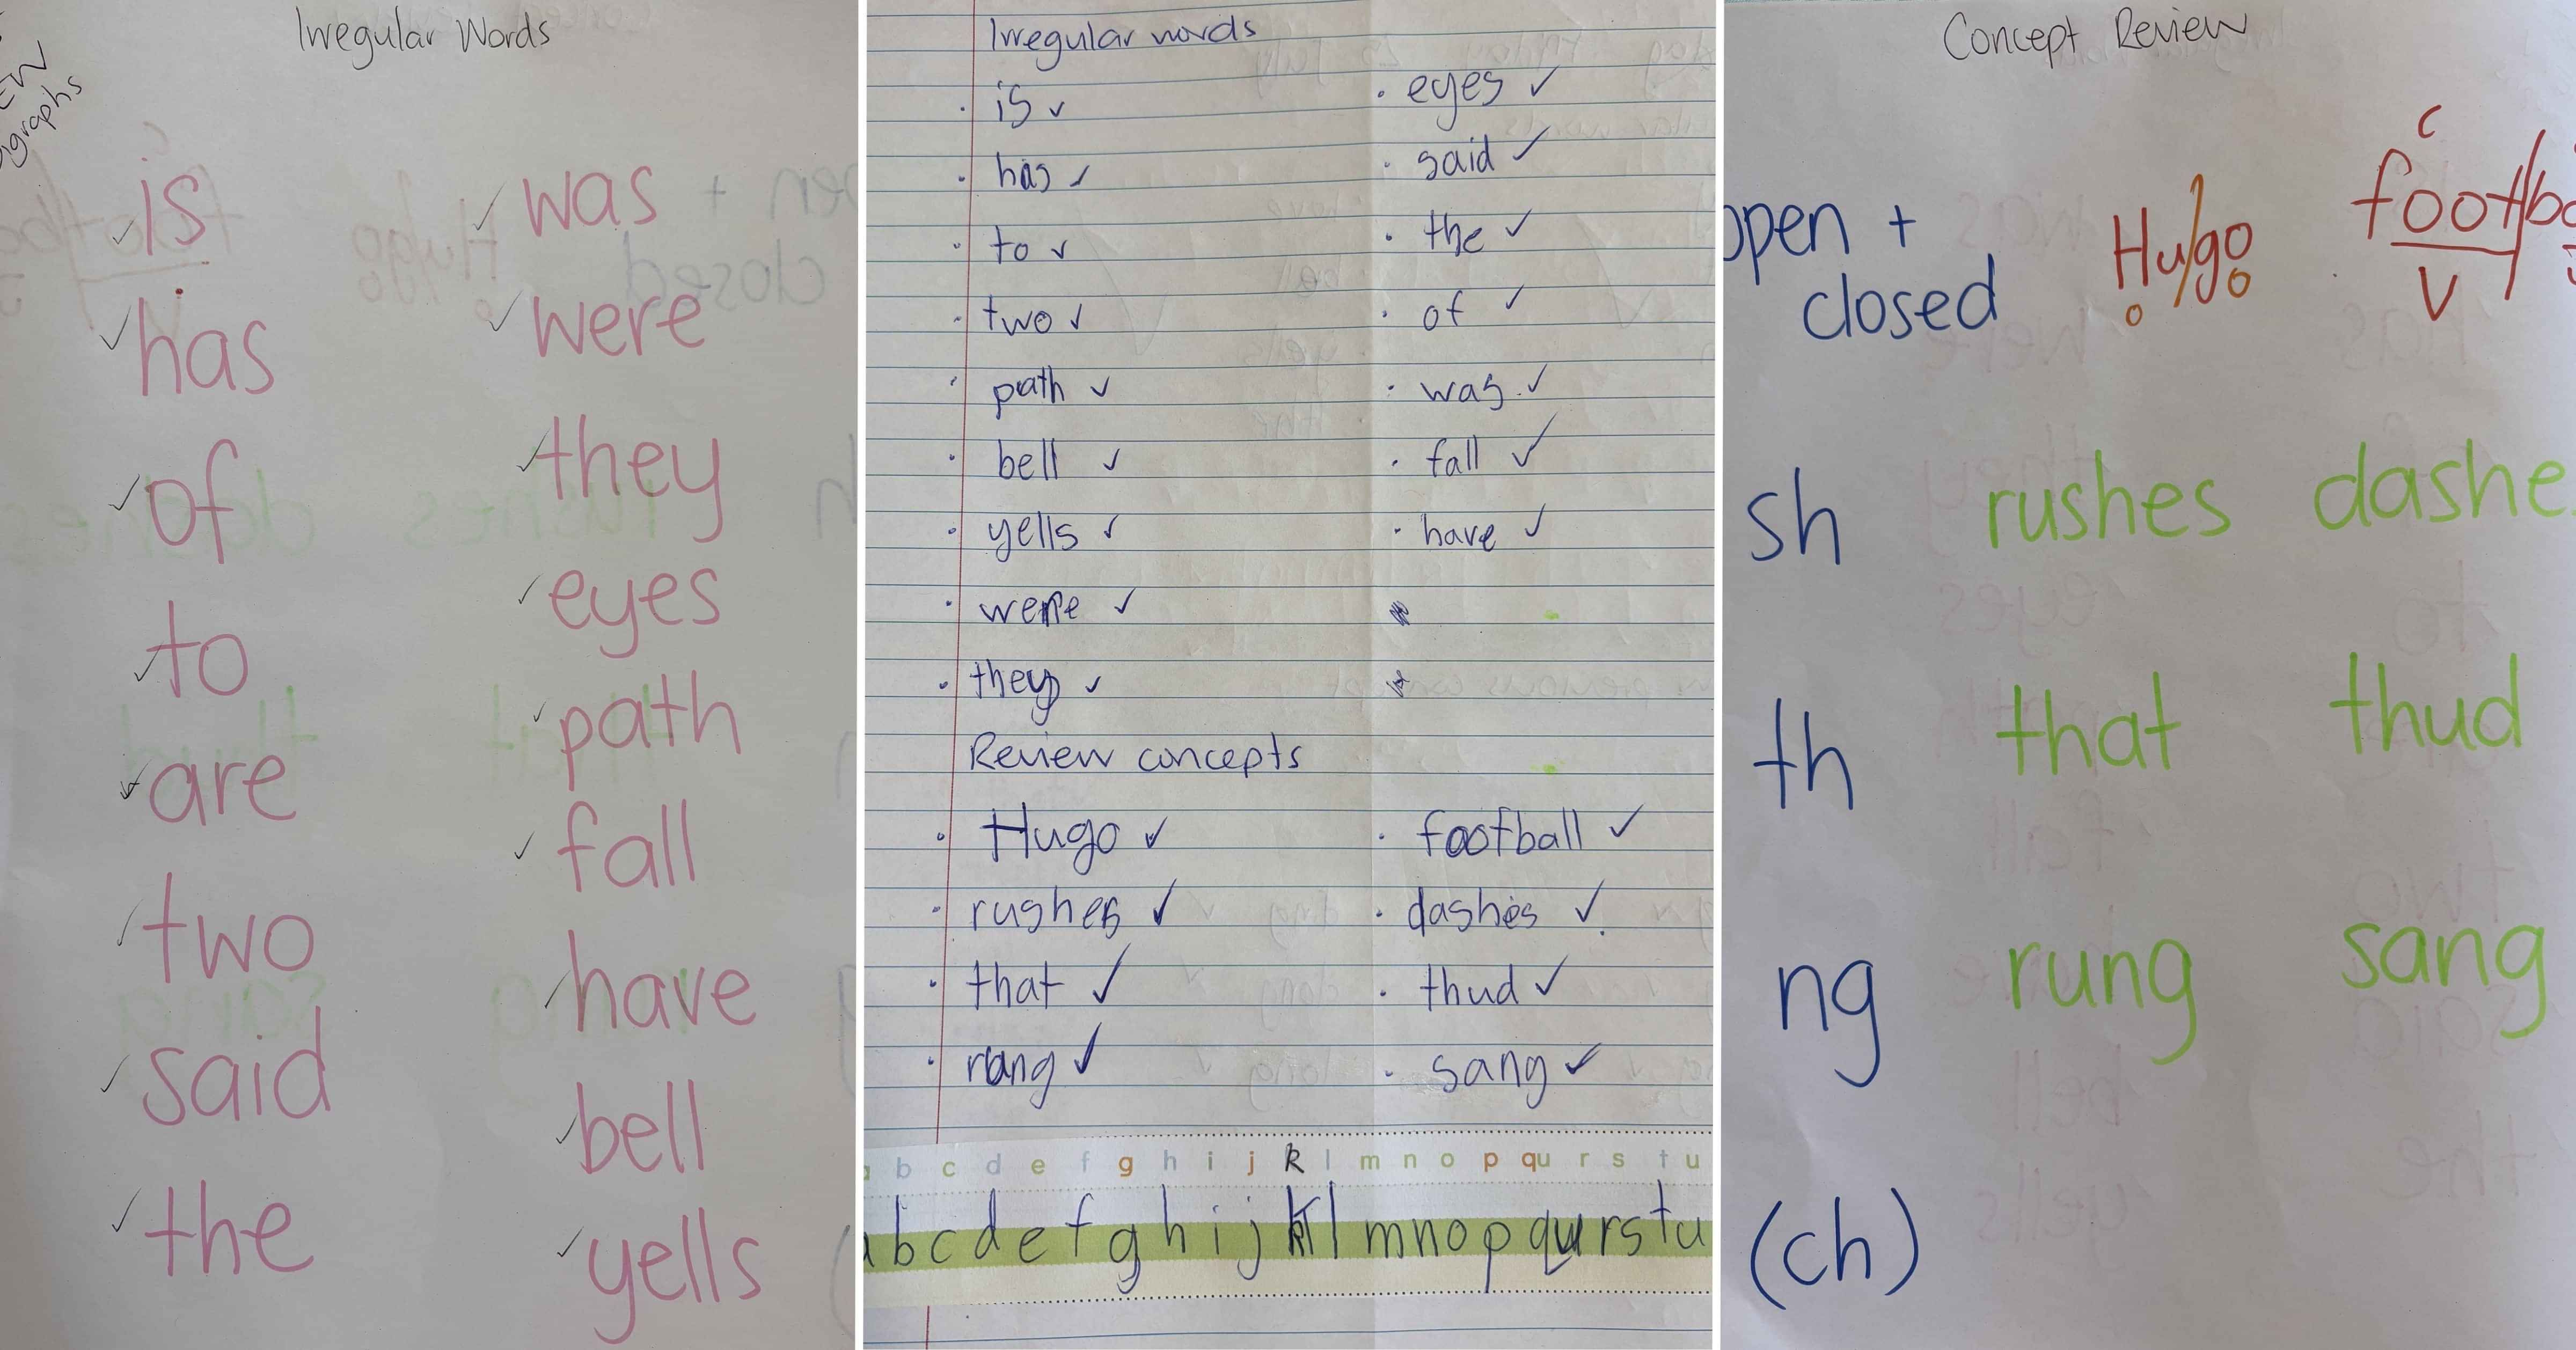 Irregular Words
is
has
of
to
are
two
said
the
was
were
they
eyes
path
fall
have
bell
yells
Irregular words
is
has
to
two
path
bell
yells
were
they
eyes
said
the
of
was
fall
have
Review concepts
Hugo
rushes
that
rang
football
dashes
thud
sang
b c d e f g h i j k l m n o p qu r s t u
a b c d e f g h i j k l m n o p qu r s t u
Concept Review
open + closed
Hu/go
o o
c
footb
v
sh rushes dashe
th that thud
ng rung sang
(ch)